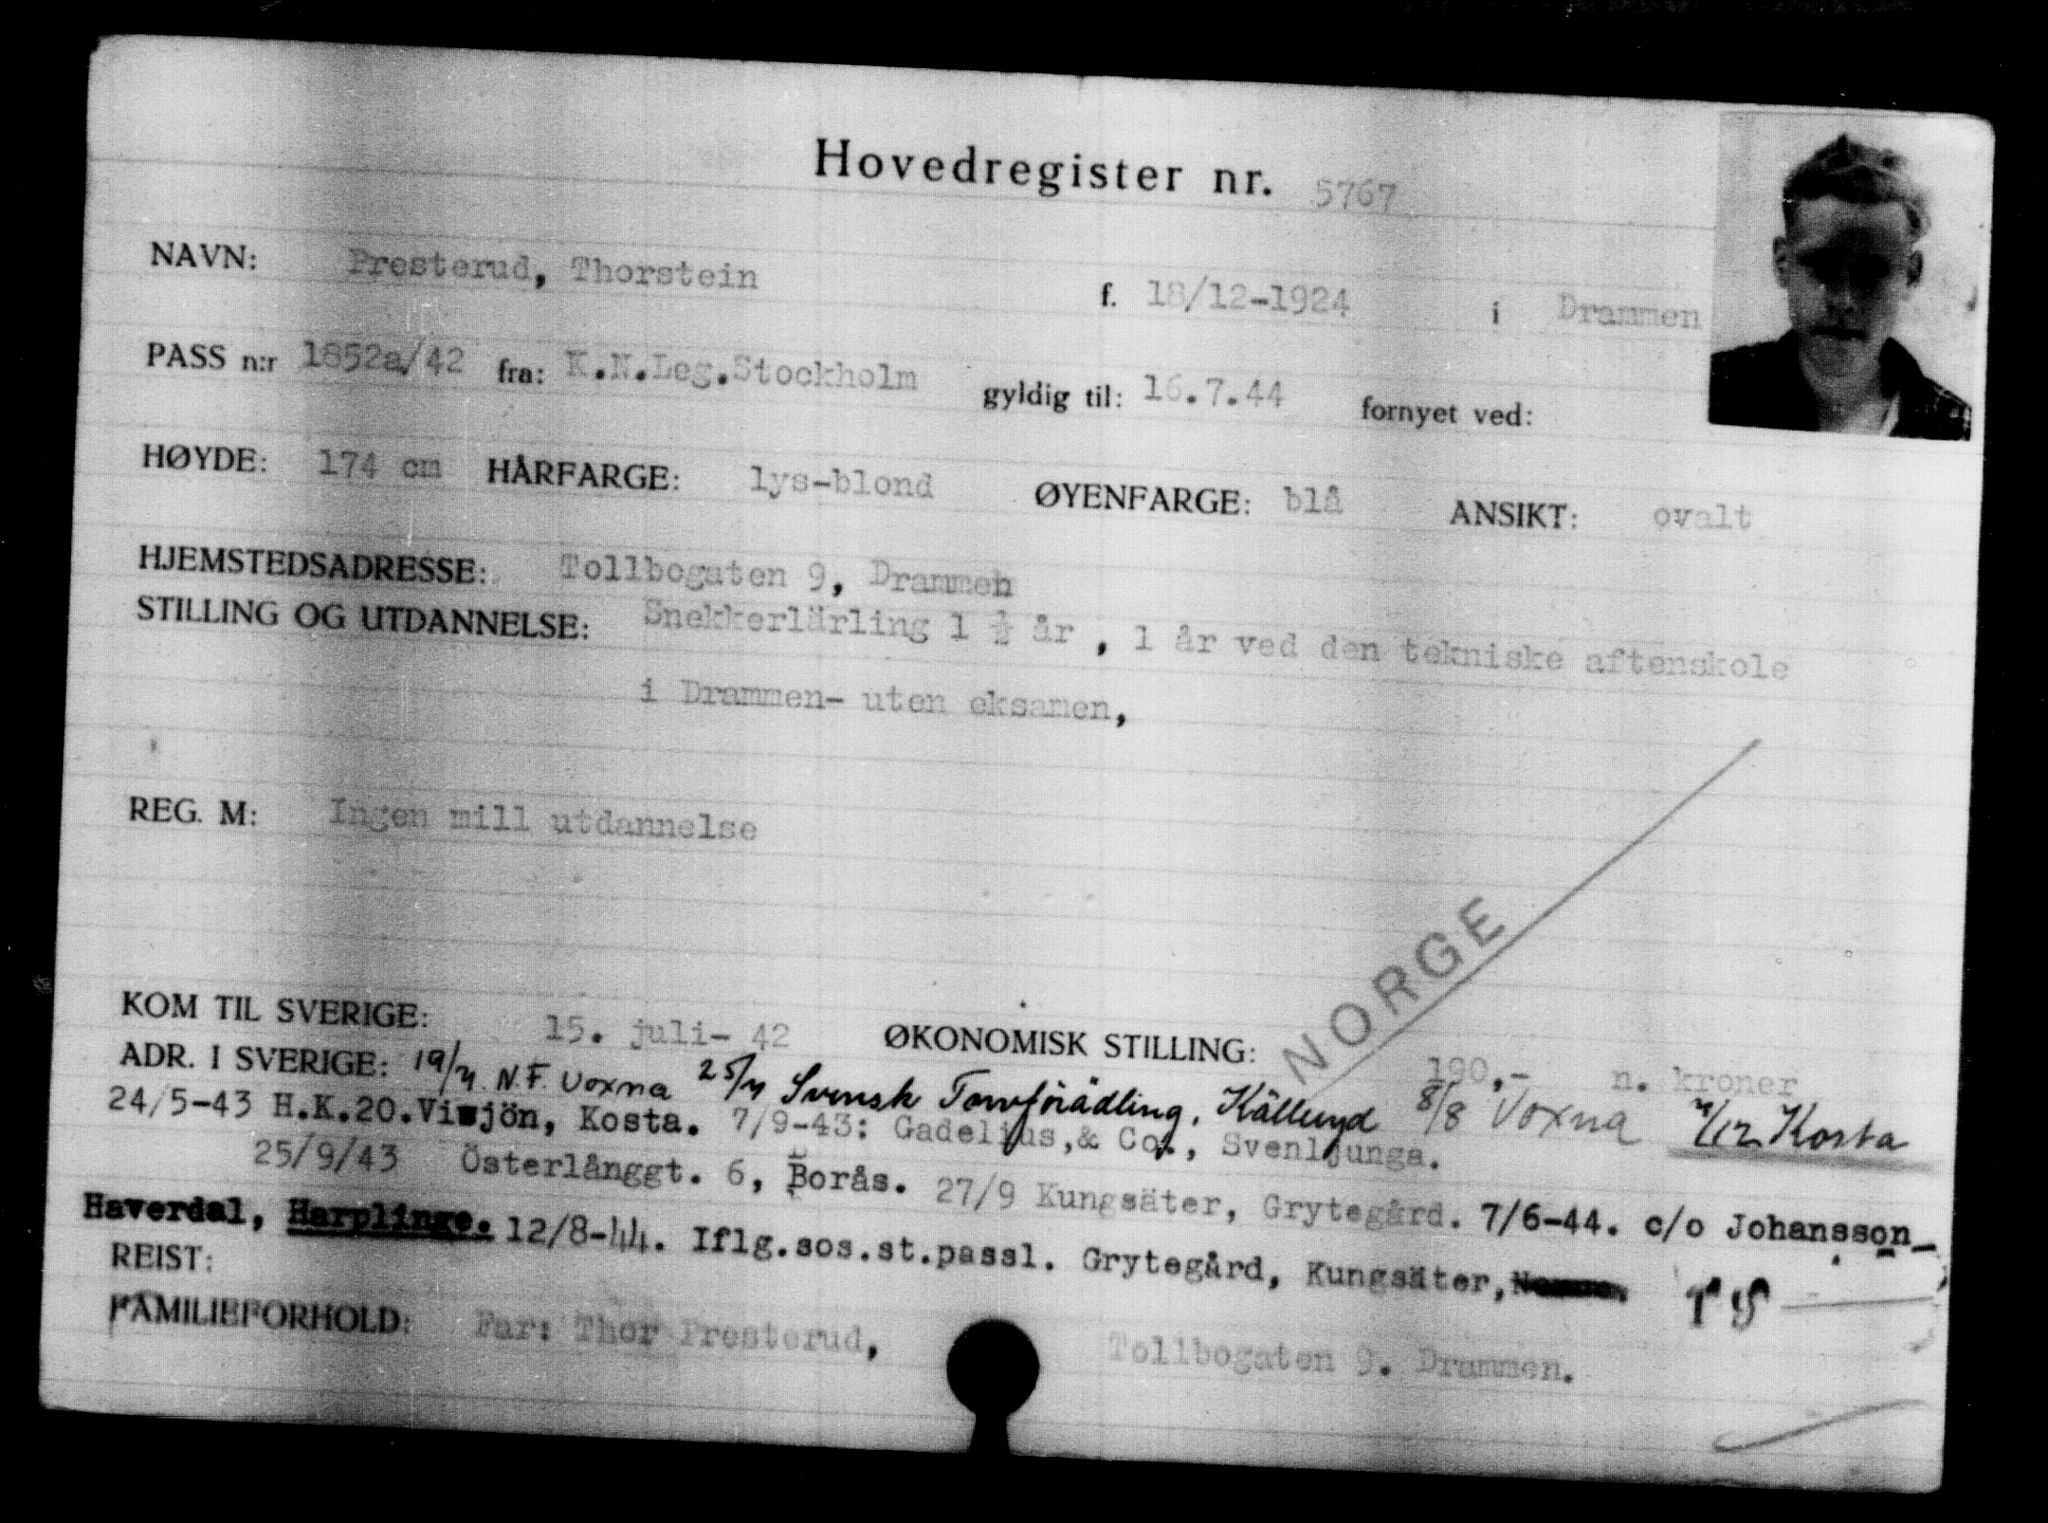 Hovedregister nr. 5767
NAVN: Presterud, Thorstein f. 18/12-1924 i Drammen
PASS n:r 1852a/42 fra: K.N.Leg.Stockholm gyldig til: 16.7.44 fornyet ved:
HØYDE: 174 cm HÅRFARGE: lys-blond ØYENFARGE: blå ANSIKT: ovalt
HJEMSTEDSADRESSE: Tollbogaten 9, Drammen
STILLING OG UTDANNELSE: Snekkerlärling 1 ½ år , 1 år ved den tekniske aftenskole
i Drammen- uten eksamen,
REG. M: Ingen mill utdannelse
NORGE
KOM TIL SVERIGE: 15. juli- 42 ØKONOMISK STILLING: 190,- n. kroner
ADR. I SVERIGE: 19/7 N.F. Voxna 25/7 Svensk Torvförädling, Källeryd 8/8 Voxna 7/12 Kosta
24/5-43 H.K.20.Visjön, Kosta. 7/9-43: Gadelius,& Co., Svenljunga.
25/9/43 Österlånggt. 6, Borås. 27/9 Kungsäter, Grytegård. 7/6-44. c/o Johansson_
Haverdal, Harplinge. 12/8-44. Iflg.sos.st.passl. Grytegård, Kungsäter,
REIST:
FAMILIEFORHOLD: Far: Thor Presterud, Tollbogaten 9. Drammen.